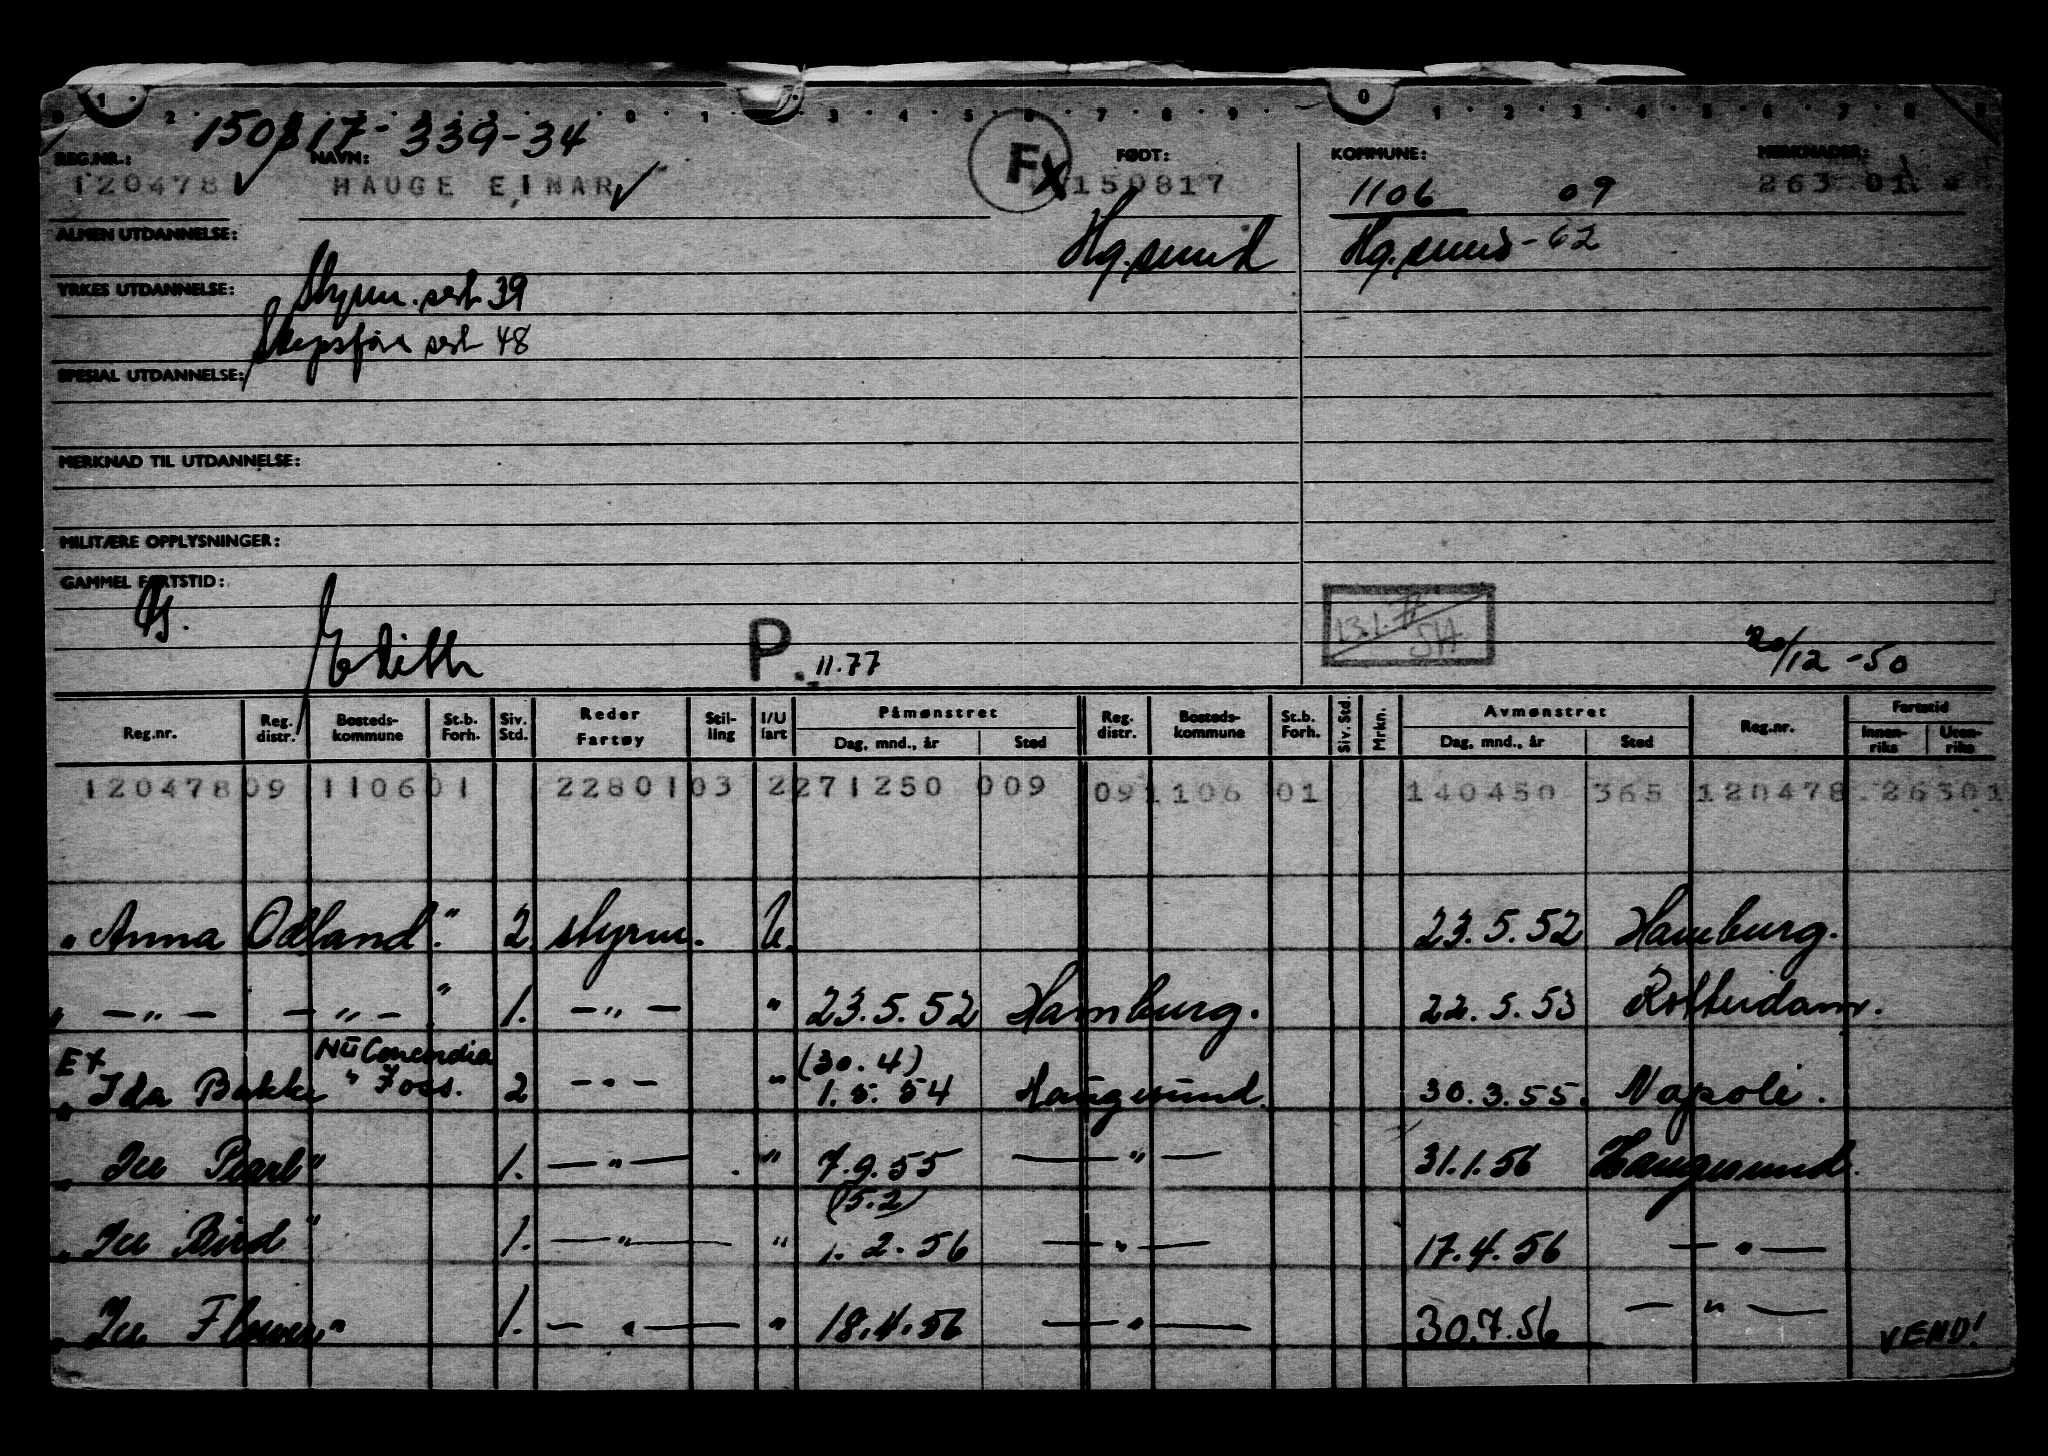 150817-339-34
REG.NR.: NAVN: FØDT: KOMMUNE: MERKNADER:
120478 HAUGE EINAR Fx 150817 1106 09 263 01
ALMEN UTDANNELSE: Hg.sund Hg.sund-62
YRKES UTDANNELSE: Styrm. sert 39
Skipsfør sert 48
SPESIAL UTDANNELSE:
MERKNAD TIL UTDANNELSE:
MILITÆRE OPPLYSNINGER:
GAMMEL FARTSTID:
13.1.77 SH
Edith P. 11.77 20/12-50
Reg.nr. Reg. distr. Bosteds-kommune St.b. Forh. Siv. Std. Reder Fartøy Stil-ling I/U fart Påmønstret Dag, mnd., år Sted Reg. distr. Bosteds-kommune St.b. Forh. Siv. Std. Mrkn. Avmønstret Dag, mnd., år Sted Reg.nr. Fartstid Innen-riks Uten-riks
120478 09 1106 01 228010 3 2 271250 009 09 1106 01 140450 365 120478 . 26301
" Anna Odland." 2 styrm. U. 23.5.52 Hamburg.
" — " — — " — " 1. — " — " 23.5.52 Hamburg. 22.5.53 Rotterdam.
Ex Nū Concordia (30.4)
" Ida Bakke " Foss. 2 — " — " 1.5.54 Haugesund. 30.3.55. Napoli.
" Ice Pearl" 1. — " — " 7.9.55 — " — 31.1.56 Haugesund.
(5.2)
" Ice Bird" 1. — " — " 1.2.56 — " — 17.4.56 — " —
" Ice Flower" 1. — " — " 18.4.56 — " — 30.7.56 — " — VEND!